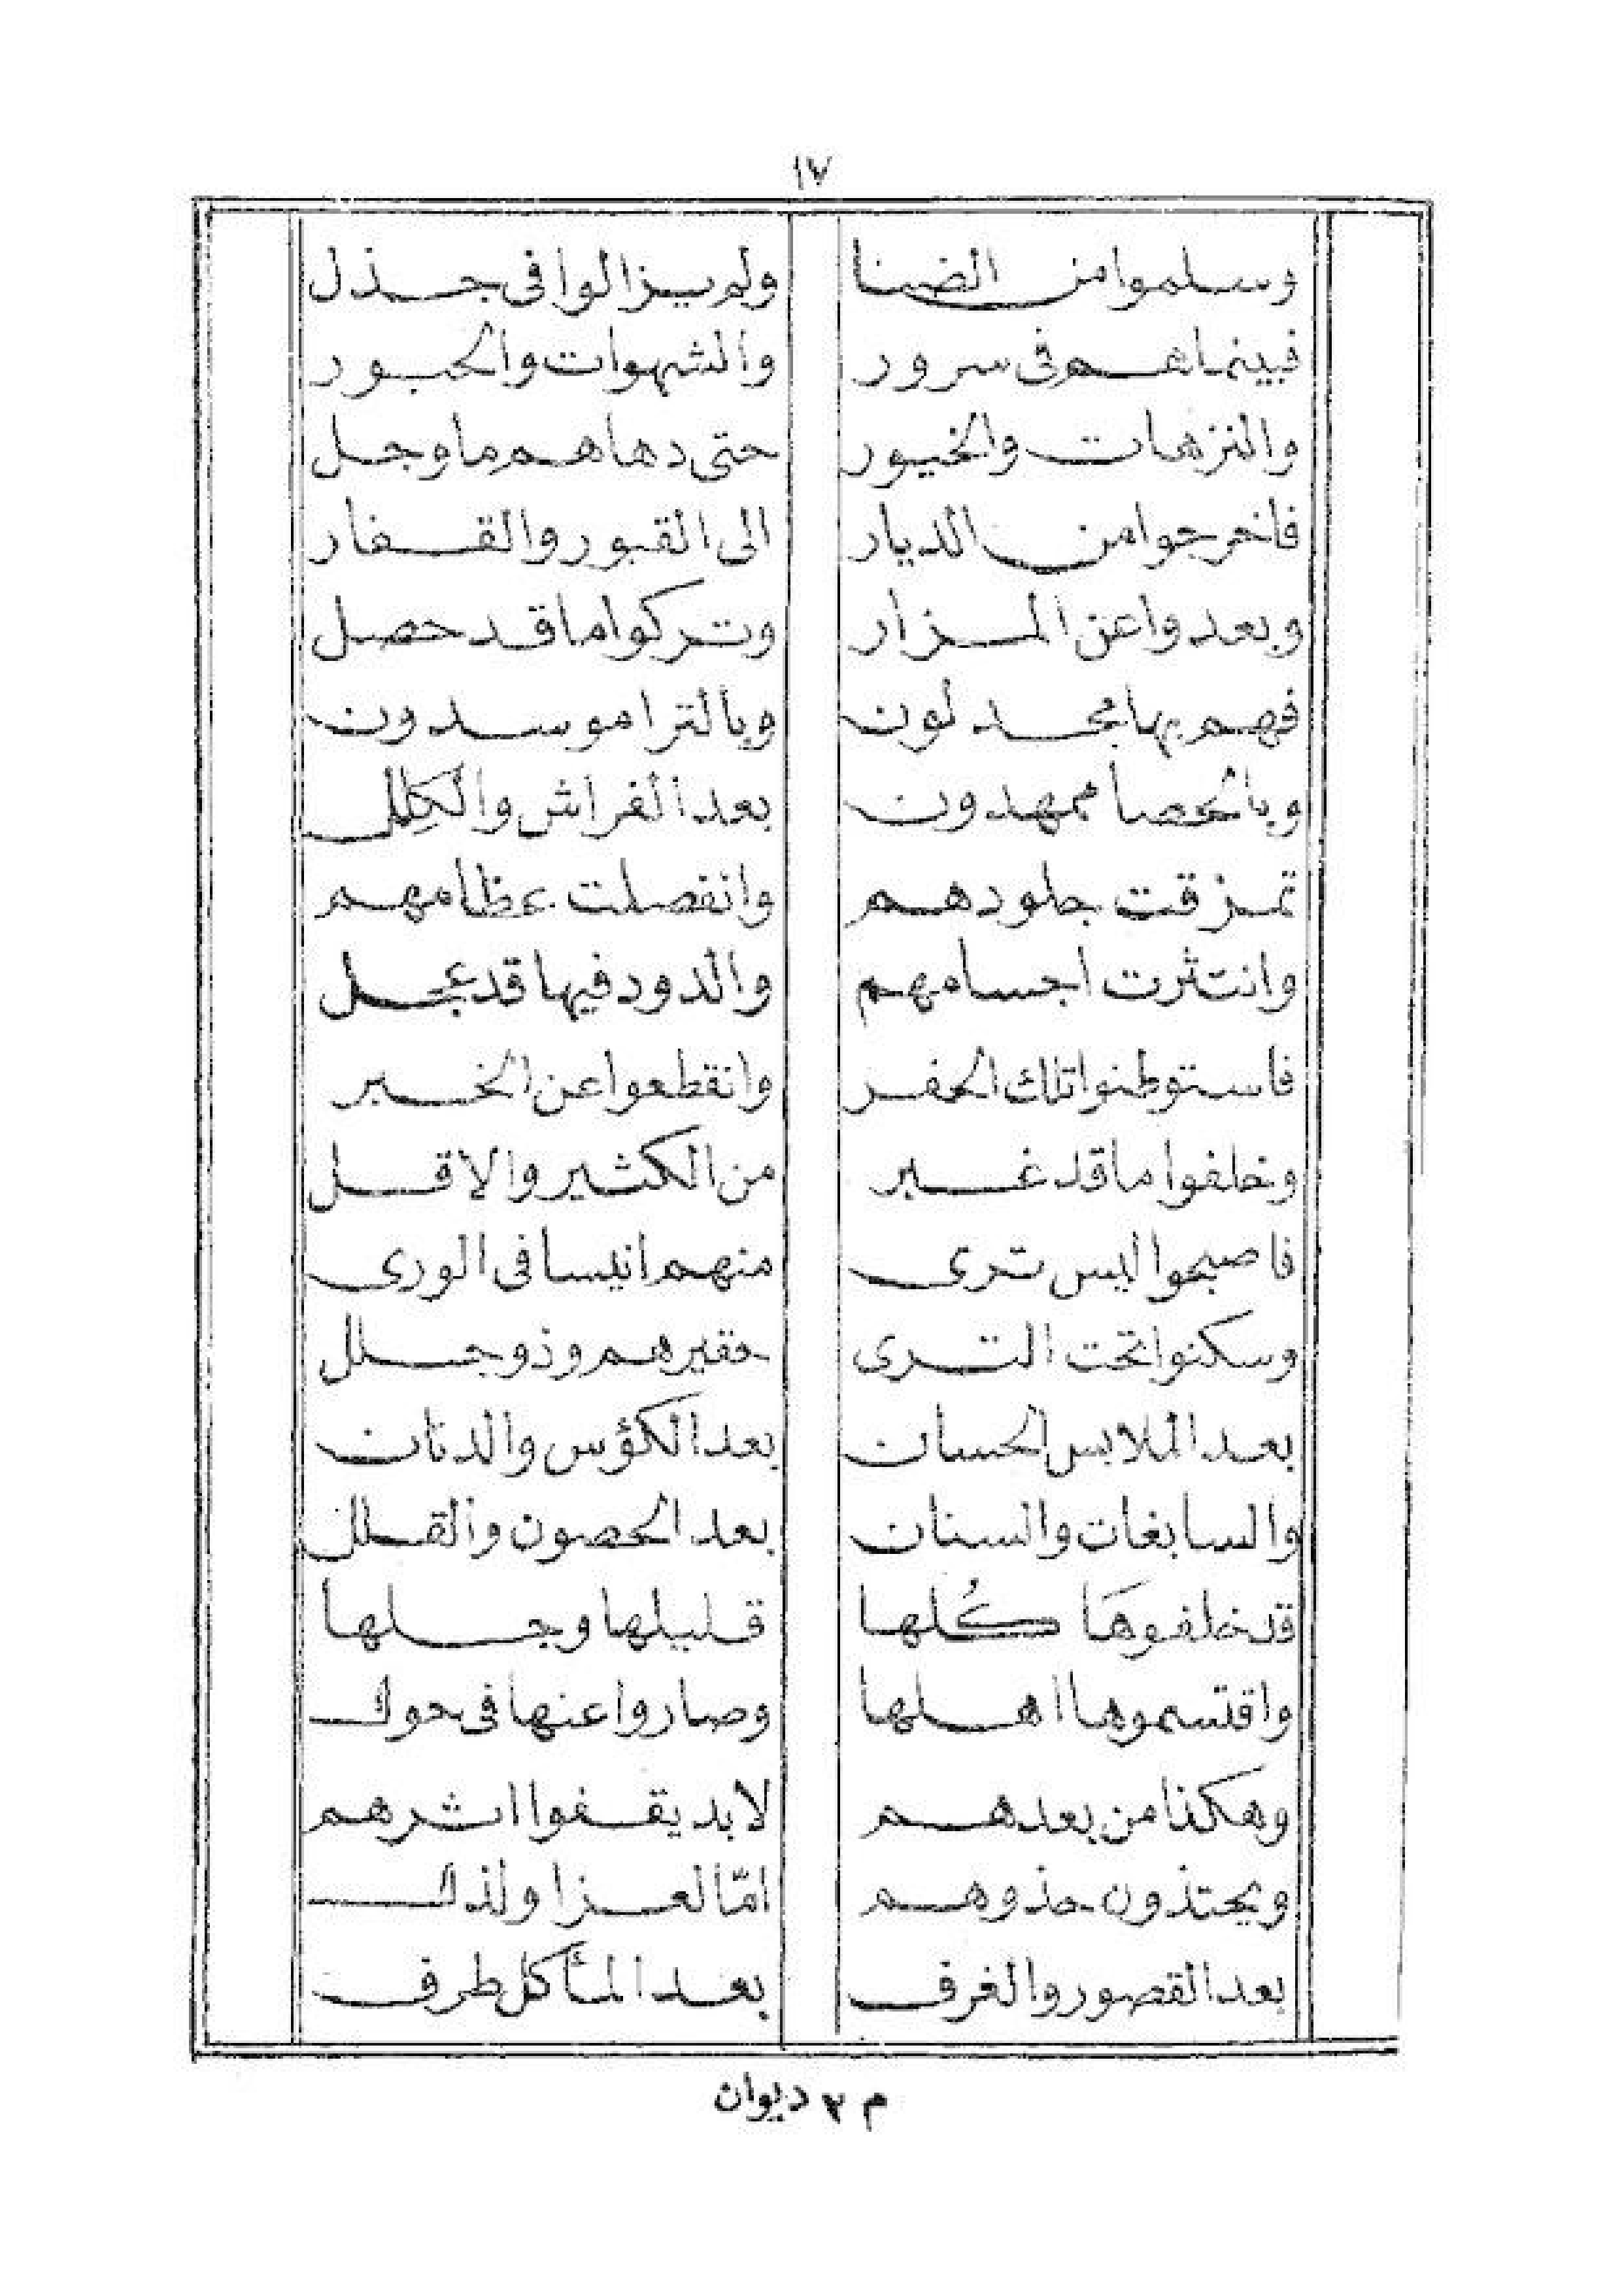 ١٧
وسلموا من الضنا ولم يزالوا فى جذل
فبينما هم فى سرور والشهوات والحبور
والنزهات والخيور حتى دهاهم ما وجل
فاخرجوا من الديار الى القبور والقفار
وبعدوا عن المزار وتركوا ما قد حصل
فهم بها مجدلون وبالترا موسدون
وبالحصا ممهدون بعد الفراش والكِلل
تمزقت جلودهم وانفصلت عظامهم
وانتثرت اجسامهم والدود فيها قد عجل
فاستوطنوا تلك الحفر وانقطعوا عن الخبر
وخلفوا ما قد غبر من الكثير والاقل
فاصبحوا ليس ترى منهم انيسا فى الورى
وسكنوا تحت الترى حقيرهم وذو جلل
بعد الملابس الحسان بعد الكؤس والدنان
والسابغات والسنان بعد الحصون والقلل
قد خلفوهَا كُلها قليلها وجلها
واقتسموها اهلها وصاروا عنها فى حول
وهكذا من بعدهم لا بد يقفوا اثرهم
ويحتذون حذوهم امّا لعز او لذل
بعد القصور والغرف بعد المأكل طرف
م ٢ ديوان